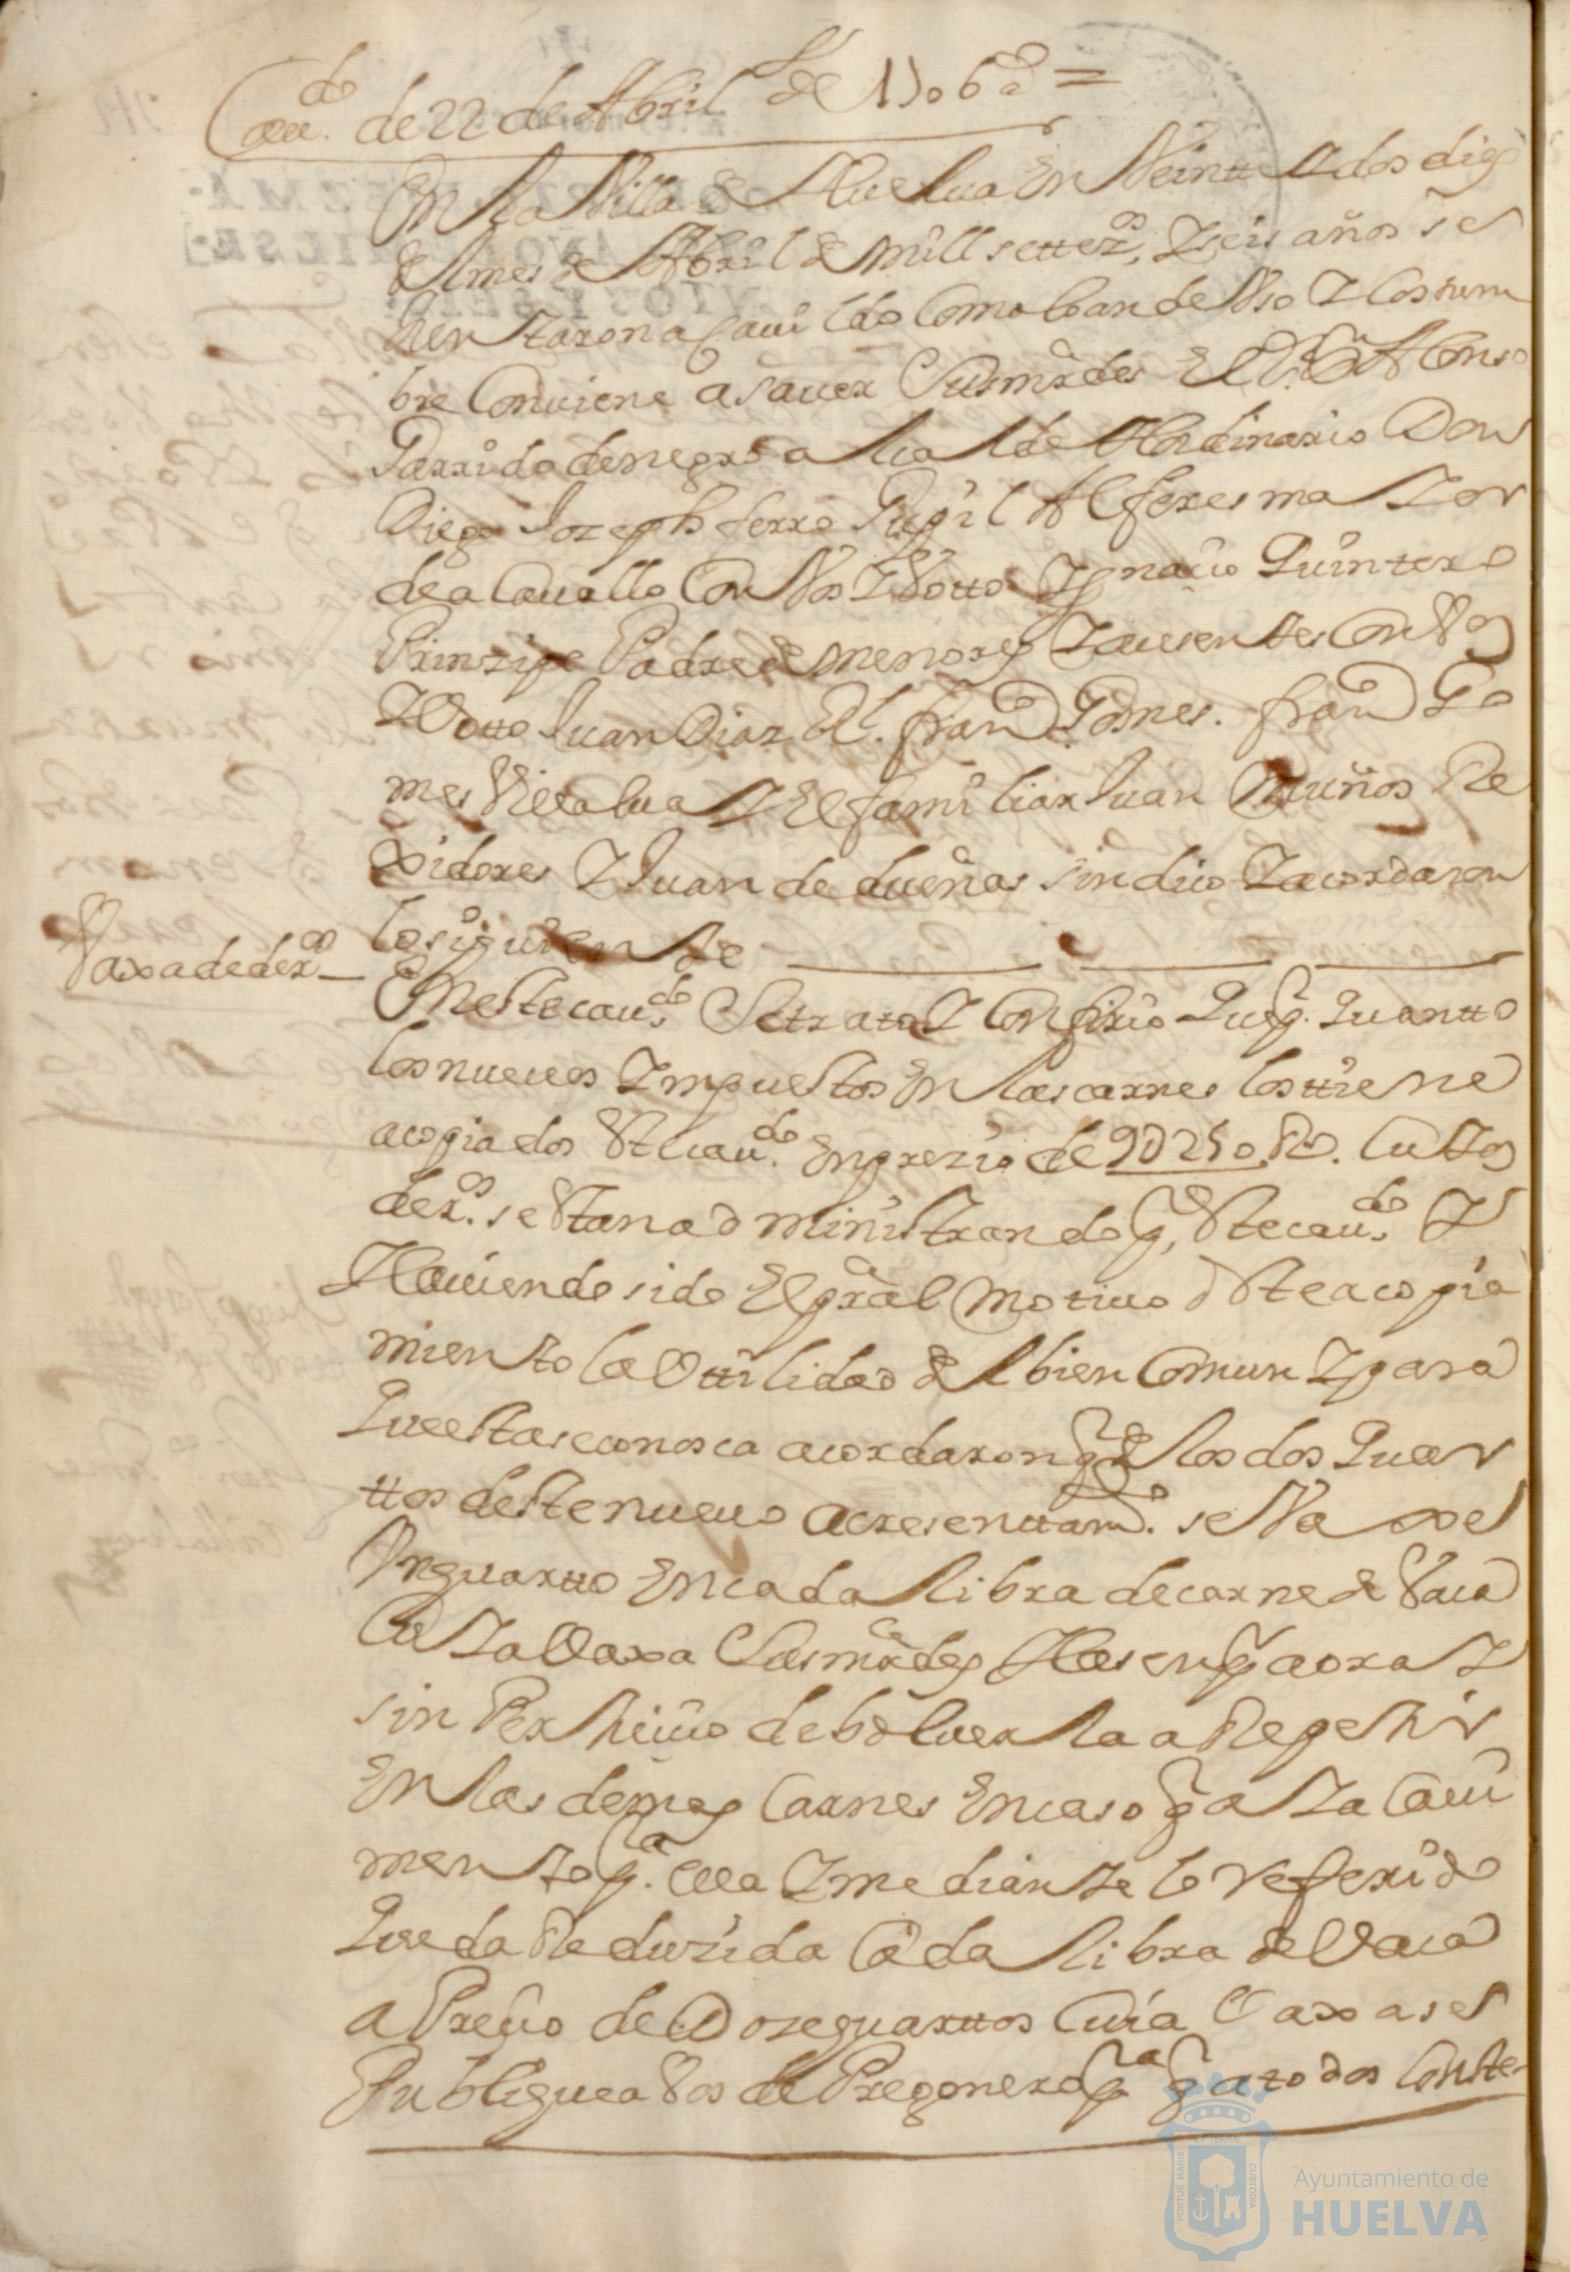 Cau.do de 22 de Abril de 1706 a.s =
En la Villa de Huelua en Veintte y dos dias
del mes de Abril de mill settez.os y seis años se
Juntaron a Cauildo Como lo an de Vso y Costum
bre Conuiene a sauer Susmrdes El S.r D.n Alonso
Garrido de negro alcalde Hordinario Don
Diego Jozeph ferro Alferes maior
de a Cauallo Con Vos y Votto Ygnacio Quintero
Prinzipe Padre de menores y ausentes Con Vos
y Votto Juan Diaz fran.co Gomes. fran.co Go
mes Villalua y El familiar Juan Muños Re
xidores y Juan de dueñas sindico y acordaron
lo siguiente
Vaxa de der.os
En este cau.do Se trato y Confirio Que p.r Quantto
los nueuos Ympuestos En las carnes los ttiene
acopiados Este cau.do En prezio de 9U250 R.s Cuios
der.os se estan administrando p.r Este cau.do y
Hauiendo sido El pral Motiuo de Este acopia
miento la Vttilidad del bien Comun y para
Que esta se conosca acordaron q.e de los dos Quar
ttos deste nueuo acresenttam.to se Vaxe
Vn quartto En cada libra de carne de Vaca
Cuia Vaxa Susmrdes Hasen p.r aora y
sin Perjuicio de boluerla a Repetir
En las demas Carnes En caso q.e aia Caui
mento p.a ella y mediante lo referido
Queda Reduzida Cada libra de Vaca
a Precio de Doze quarttos Cuia Vaxa se
Publique a Vos de Pregonero p.a q.e a todos Conste
Ayuntamiento de
HUELVA
PORTUS MARIS
ET TERRAE
CUSTODIA